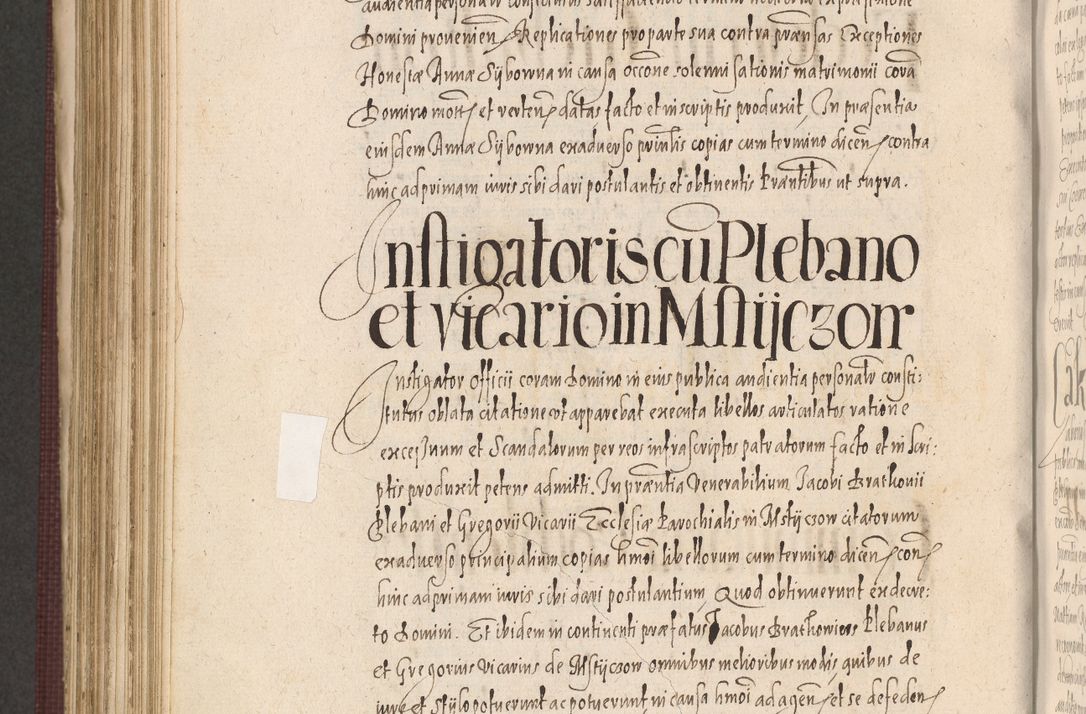 Domini provenien Replicationes pro parte sua contra praensas Exceptiones
Honestæ Annæ Sÿbowna in causa occone solemnisationis matrimonii corā
Domino mott et verten datas facto et in scriptis produxit, In præsentia
eiusdem Annæ Sÿbowna ex adverso prinlis copias cum termino dicen contra
hinc ad primam iuris sibi dari postulantis et obtinentis Præntibus ut supra.
Instigatoris cū Plebano
et vicario in Mstijczow
Instigator officii coram Domino in eius publica audientia personalr consti:
tutus oblata citatione ut apparebat executa libellos articulatos ratione
excessuum et Scandalorum per reos infrascriptos patratorum facto et in scri:
ptis produxit petens admitti. In præntia Venerabilium Jacobi Brathovii
Plebani et Gregorii Vicarii Ecclesiæ Parochialis in Mstijczow citatorum
ex adverso principalium copias hmoi libellorum cum termino dicen con
hinc ad primam iuris sibi dari postulantium, Quod obtinuerunt ex decre:
to Domini. Et ibidem in continenti præfatus Jacobus Brathowicus Plebanus
et Gregorius Vicarius de Mstijczow omnibus melioribus modis quibus de
iure et stÿlo potuerunt ac potuerunt in causa hmoi ad agen et se defeden